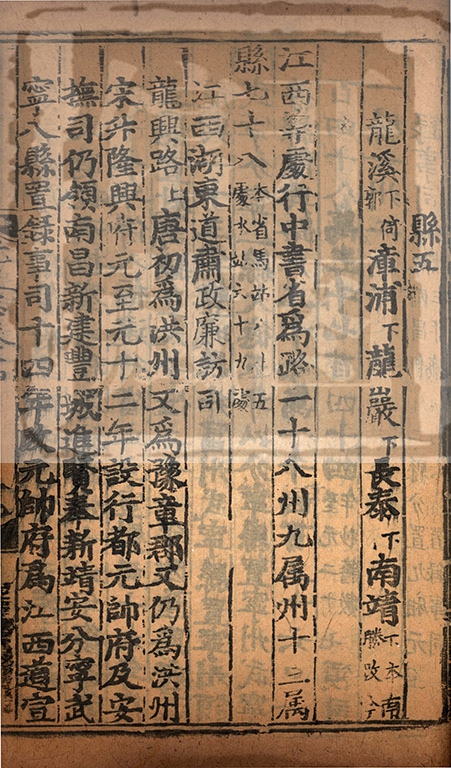 縣五
龍溪下倚郭漳浦下龍巖下長泰下南靖下本南勝改今
江西等處行中書省爲路一十八州九属州十三属
縣七十八本省馬站八十五處水站六十九處
江西湖東道肅政廉訪司
龍興路上唐初爲洪州又爲豫章郡又仍爲洪州
宋升隆興府元至元十二年設行都元帥府及安
撫司仍領南昌新建豐城進賢奉新靖安分寧武
寧八縣置錄事司十四年改元帥府爲江西道宣